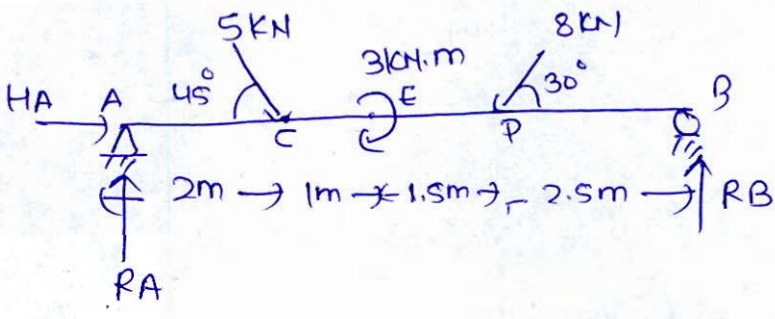 5KN 8KN
3KN.m
HA A 45° E 30° B
C P
2m 1m 1.5m 2.5m RB
RA